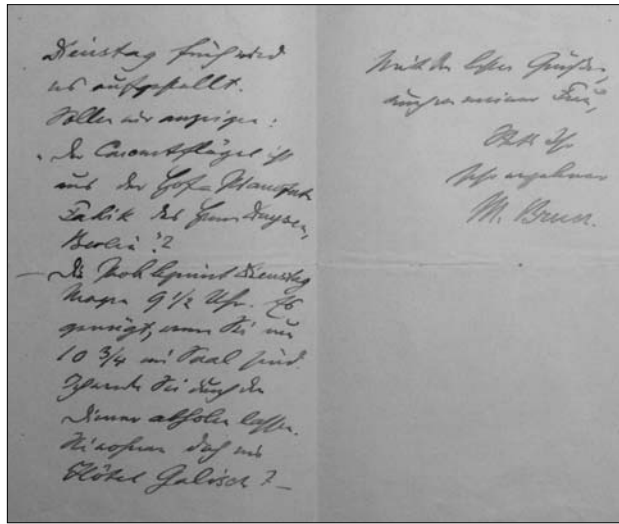 Dienstag früh wird
es aufgestellt.
Sollen wir anzeigen:
„Der Concertflügel ist
aus der Hof-Pianoforte
Fabrik des Herrn Duysen,
Berlin"?
— Die Probe beginnt Dienstag
Morgen 9 1/2 Uhr. Es
genügt, wenn Sie um
10 3/4 im Saal sind.
Ich werde Sie durch den
Diener abholen lassen.
Sie wohnen doch im
Hôtel Galisch? —
Mit den besten Grüßen,
auch von meiner Frau,
Ihr
sehr ergebener
M. Bruch.